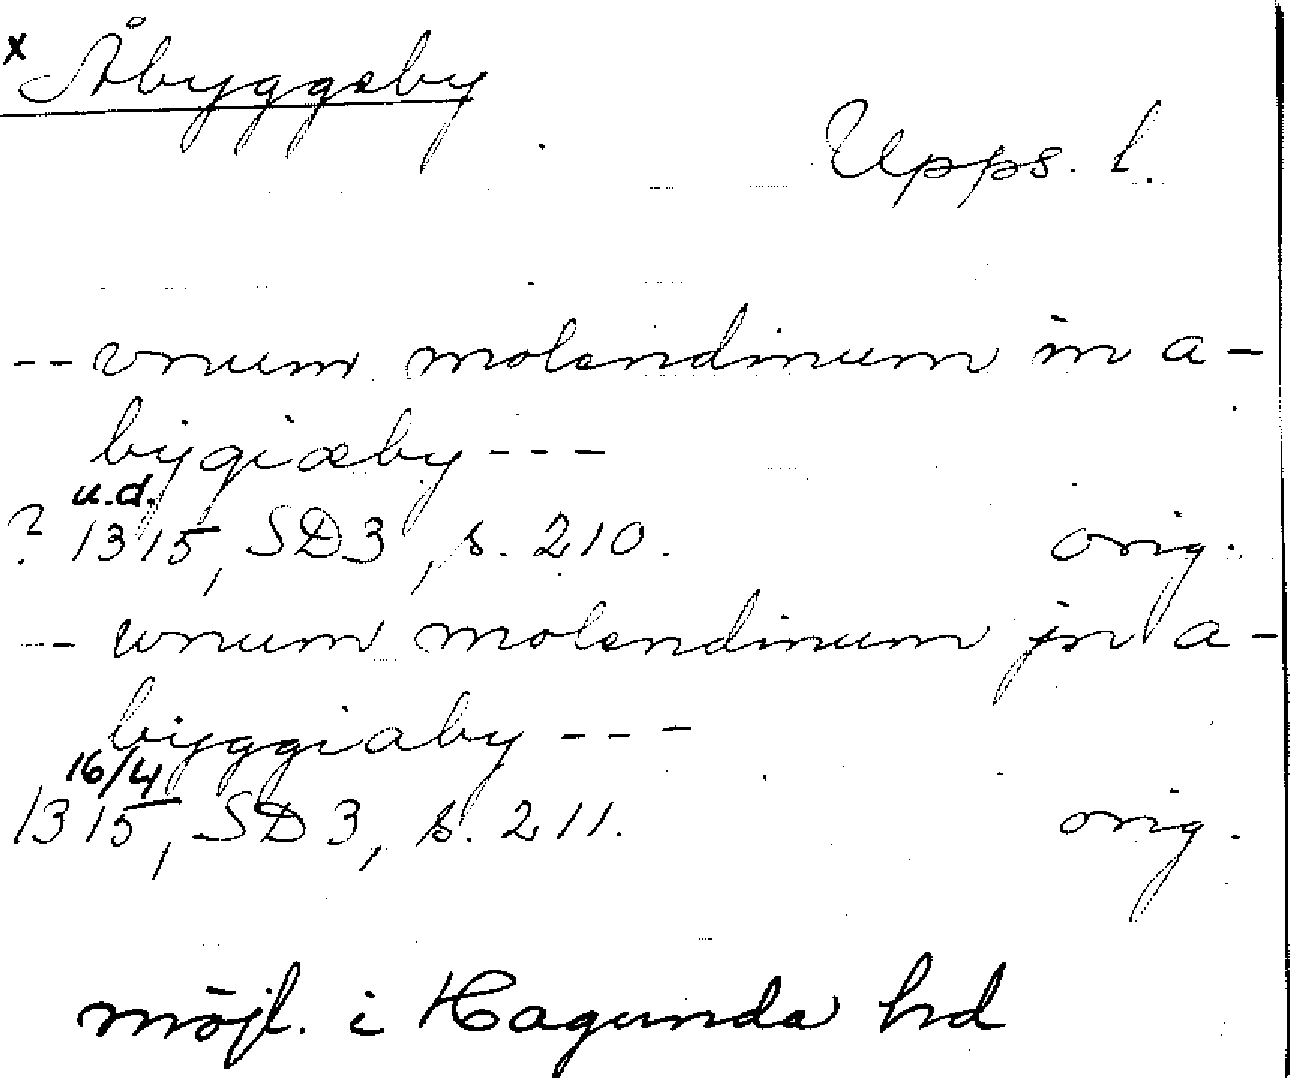 x Åbyggeby
Upps. l.
-- vnum molendinum in a-
bygiæby ---
u.d.
? 1315, SD3, s. 210. orig.
-- vnum molendinum jn a-
byggiaby ---
16/4
1315, SD3, s. 211. orig.
möjl. i Hagunda hd